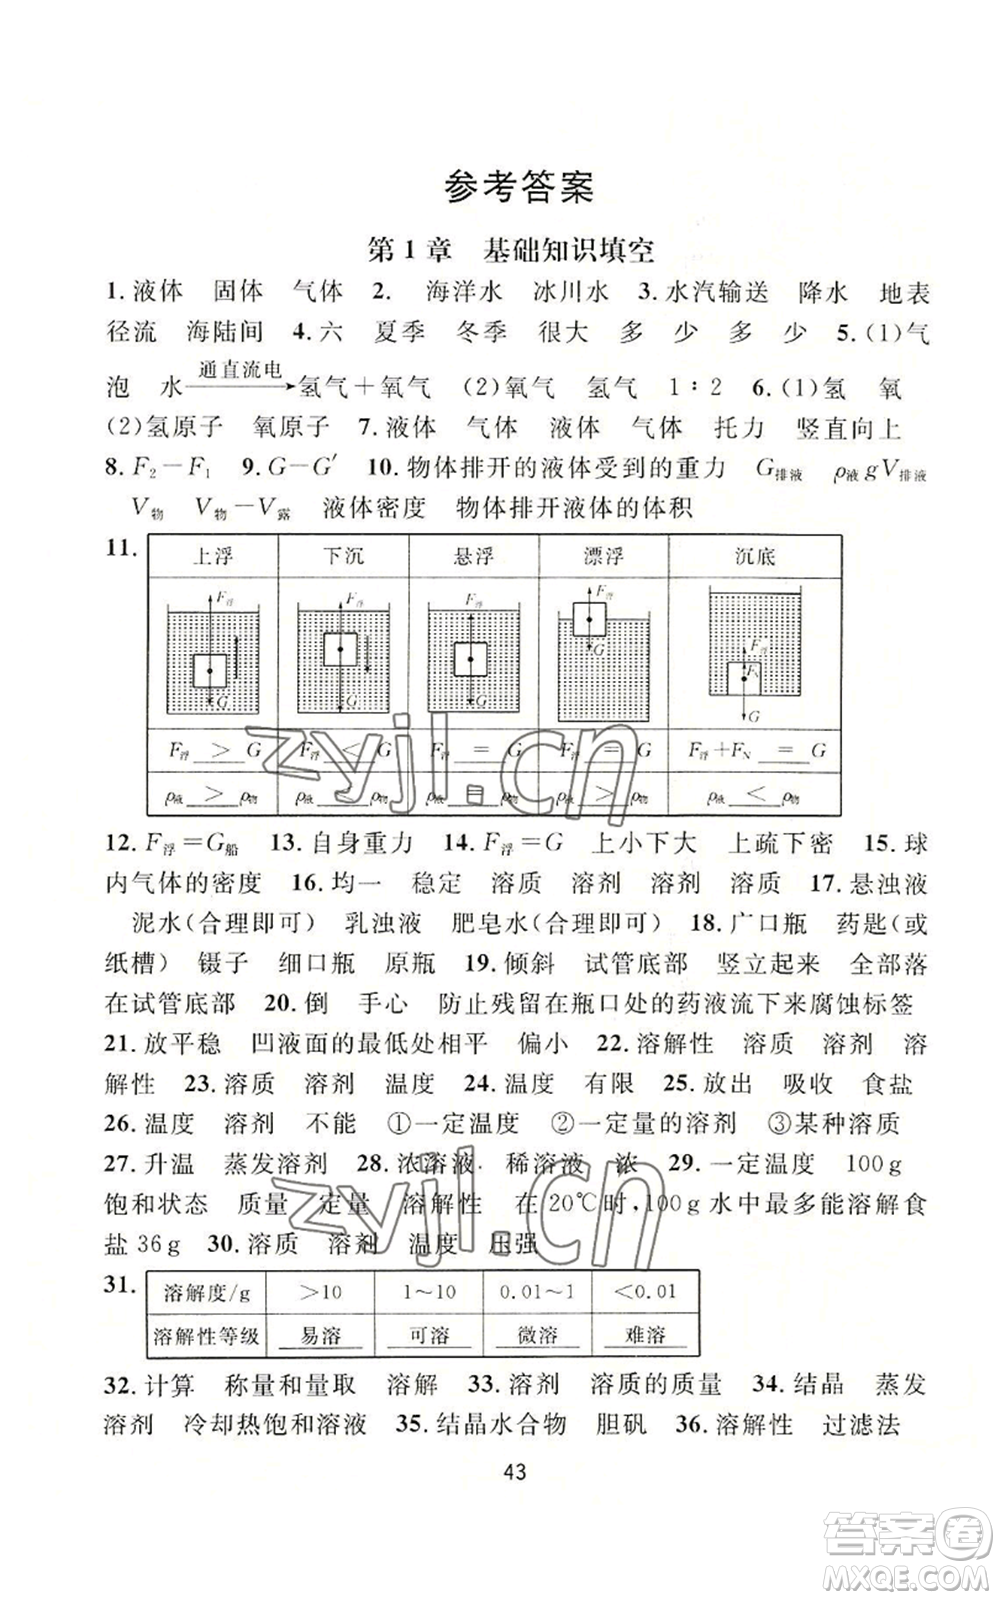 参考答案
第1章　基础知识填空
1.液体　固体　气体　2.　海洋水　冰川水　3.水汽输送　降水　地表
径流　海陆间　4.六　夏季　冬季　很大　多　少　多　少　5.(1)气
泡　水 通直流电→ 氢气+氧气　(2)氧气　氢气　1∶2　6.(1)氢　氧
(2)氢原子　氧原子　7.液体　气体　液体　气体　托力　竖直向上
8.F₂-F₁　9.G-G′　10.物体排开的液体受到的重力　G排液　ρ液gV排液
V物　V物-V露　液体密度　物体排开液体的体积
11.
上浮　下沉　悬浮　漂浮　沉底
F浮　F浮　F浮　F浮　F浮
FN
G　G　G　G　G
F浮 > G　F浮 < G　F浮 = G　F浮 = G　F浮+FN = G
ρ液 > ρ物　ρ液 ρ物　ρ液 = ρ物　ρ液 > ρ物　ρ液 < ρ物
12.F浮=G船　13.自身重力　14.F浮=G　上小下大　上疏下密　15.球
内气体的密度　16.均一　稳定　溶质　溶剂　溶剂　溶质　17.悬浊液
泥水(合理即可)　乳浊液　肥皂水(合理即可)　18.广口瓶　药匙(或
纸槽)　镊子　细口瓶　原瓶　19.倾斜　试管底部　竖立起来　全部落
在试管底部　20.倒　手心　防止残留在瓶口处的药液流下来腐蚀标签
21.放平稳　凹液面的最低处相平　偏小　22.溶解性　溶质　溶剂　溶
解性　23.溶质　溶剂　温度　24.温度　有限　25.放出　吸收　食盐
26.温度　溶剂　不能　①一定温度　②一定量的溶剂　③某种溶质
27.升温　蒸发溶剂　28.浓溶液　稀溶液　浓　29.一定温度　100g
饱和状态　质量　定量　溶解性　在20℃时,100g水中最多能溶解食
盐36g　30.溶质　溶剂　温度　压强
31.
溶解度/g　>10　1~10　0.01~1　<0.01
溶解性等级　易溶　可溶　微溶　难溶
32.计算　称量和量取　溶解　33.溶剂　溶质的质量　34.结晶　蒸发
溶剂　冷却热饱和溶液　35.结晶水合物　胆矾　36.溶解性　过滤法
43
zyjl.cn
zyjl.cn
答案圈
MXQE.COM